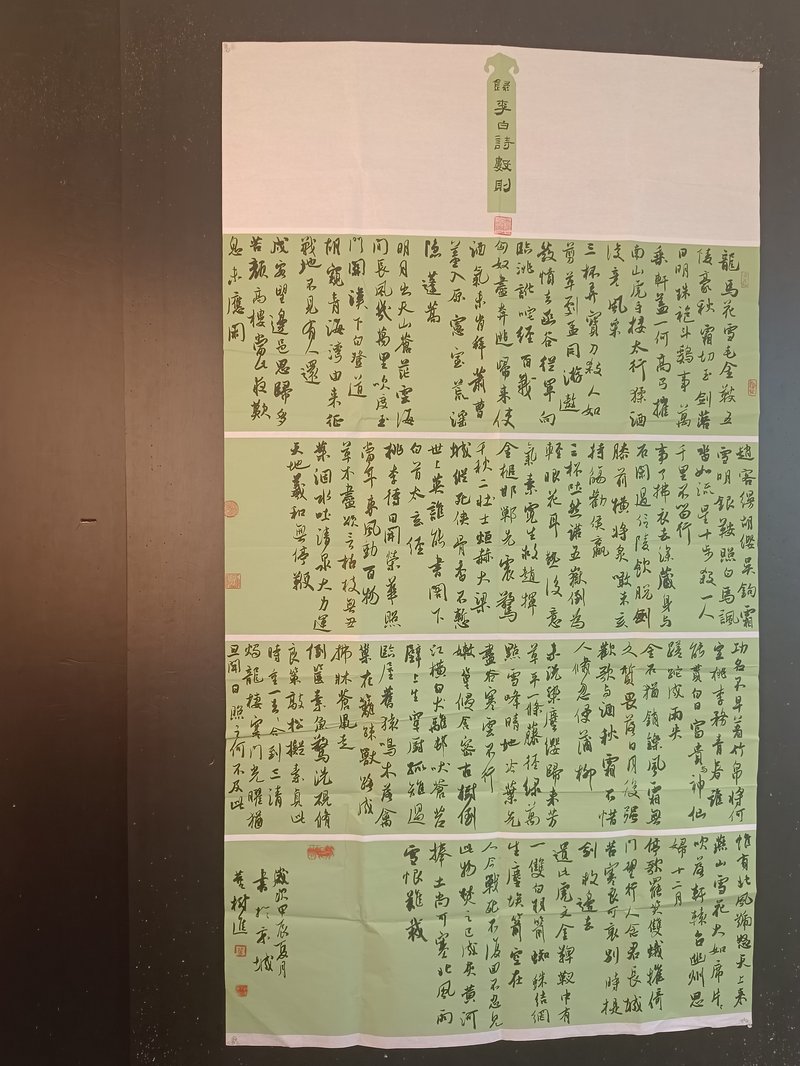 録李白詩數則
龍馬花雪毛金鞍五
陵豪秋霜切玉劍落
日明珠袍鬥鷄事萬
乘軒蓋一何高弓摧
南山虎手接太行猱酒
後竞風采
三杯弄寶刀殺人如
剪草劇孟同游遨
發憤去函谷從軍向
臨洮叱咤經百戰
匈奴盡奔逃歸來使
酒氣未肯拜蕭曹
羞入原憲室荒淫
隱蓬蒿
明月出天山蒼茫雲海
間長風幾萬里吹度玉
門關漢下白登道
胡窺青海灣由来征
戰地不見有人還
戍客望邊邑思歸多
苦顏高樓當此夜歎
息未應閑
趙客縵胡纓吳鉤霜
雪明銀鞍照白馬颯
沓如流星十步殺一人
千里不留行
事了拂衣去深藏身與
名閑過信陵飲脫劍
膝前橫將炙啖朱亥
持觴勸侯嬴
三杯吐然諾五嶽倒為
輕眼花耳熱後意
氣素霓生救趙揮
金槌邯鄲先震驚
千秋二壯士烜赫大梁
城縱死俠骨香不慙
世上英誰能書閣下
白首太玄經
桃李得日開榮華照
當年東風動百物
草木盡欲言枯枝無丑
葉涸水吐清泉大力運
天地羲和無停鞭
功名不早著竹帛將何
宣桃李務青春誰
能貫白日富貴與神仙
蹉跎成兩失
金石猶銷鑠風霜無
久質畏落日月後強
歡歌與酒秋霜不惜
人倏忽侵蒲柳
未洗染塵纓歸來芳
草平一條藤徑綠萬
點雪峰晴地冷葉先
盡谷寒雲不行
嫩篁侵舍密古樹倒
江橫白犬離村吠蒼苔
壁上生穿廚孤雉過
臨屋舊猿鳴木落禽
巢在籬疏獸路成
拂牀蒼鼠走
倒篋素魚驚洗硯修
良策敲松擬素貞此
時重一去去合到三清
燭龍棲寒門光曜猶
旦開日照之何不及此
惟有北風號怒天上来
燕山雪花大如席片片
吹落軒轅台幽州思
婦十二月
停歌罷笑雙蛾摧倚
門望行人念君長城
苦寒良可哀別時提
劍救邊去
遺此虎文金鞞靫中有
一雙白羽箭蜘蛛結網
生塵埃箭空在
人今戰死不復回不忍見
此物焚之已成灰黃河
捧土尚可塞北風雨
雪恨難裁
歲次甲辰夏月
書於京城
樹進